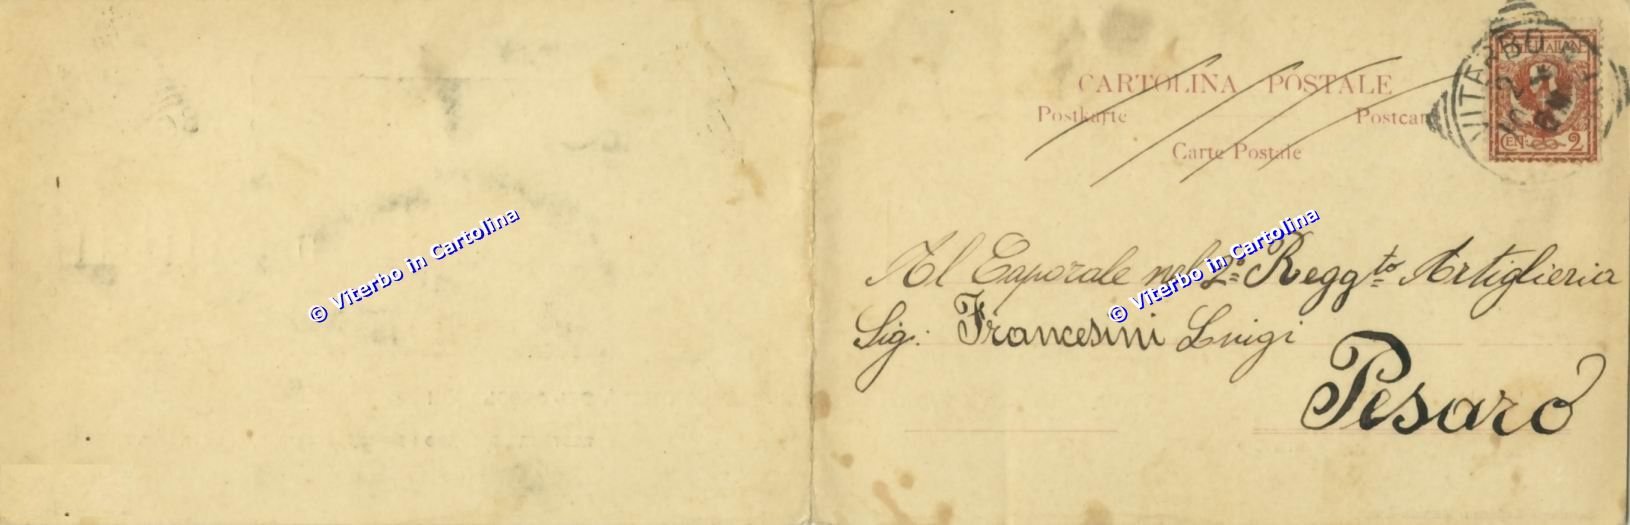 © Viterbo in Cartolina
POSTE ITALIANE
VITERBO
CEN. 2
CARTOLINA POSTALE
Postkarte
Postcar
Carte Postale
Al Caporale nel 2º Reggto Artiglieria
© Viterbo in Cartolina
Sig: Francesini Luigi
Pesaro